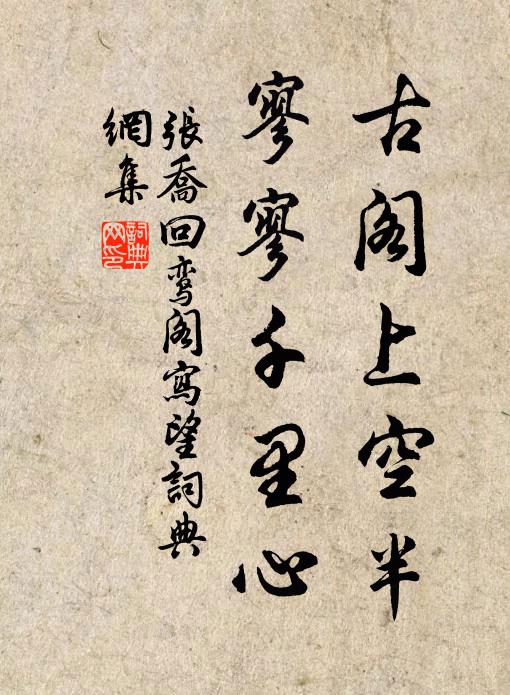 古阁上空半
寥寥千里心
張喬回鸾阁寫望詞典
網集
詞典网印